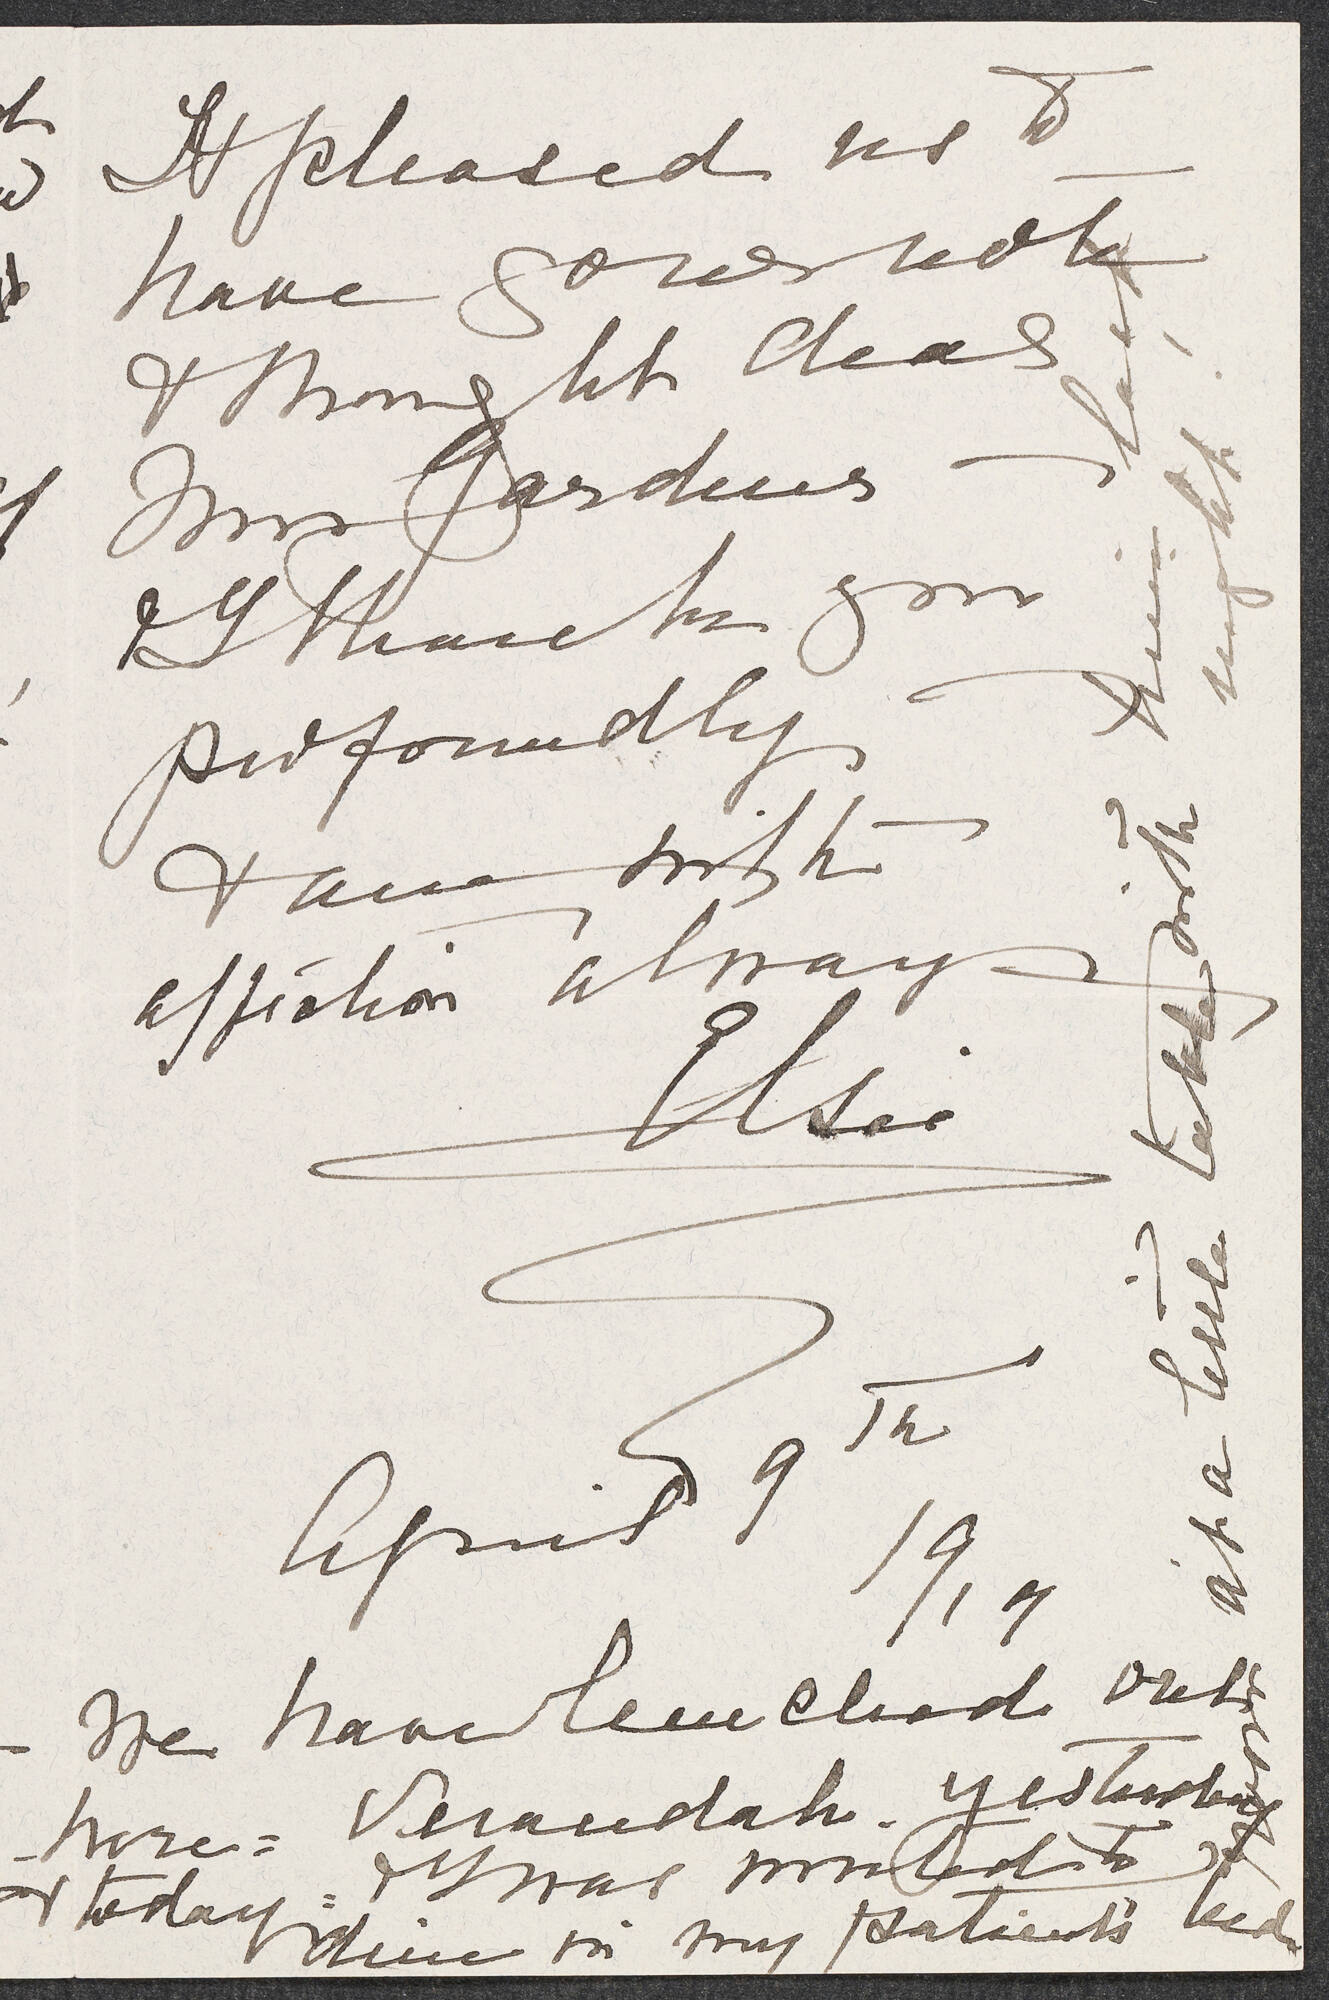 It pleased us to
have your note
& thought dear
Mrs Gardner -
& I thank you
profoundly
& am with
affection always
Elsie
April 9th
1917
We have lunched out
here = Verandah. yesterday
& today = & I was invited to
dine in my patient's bed
room
at a little table with
him last
night.